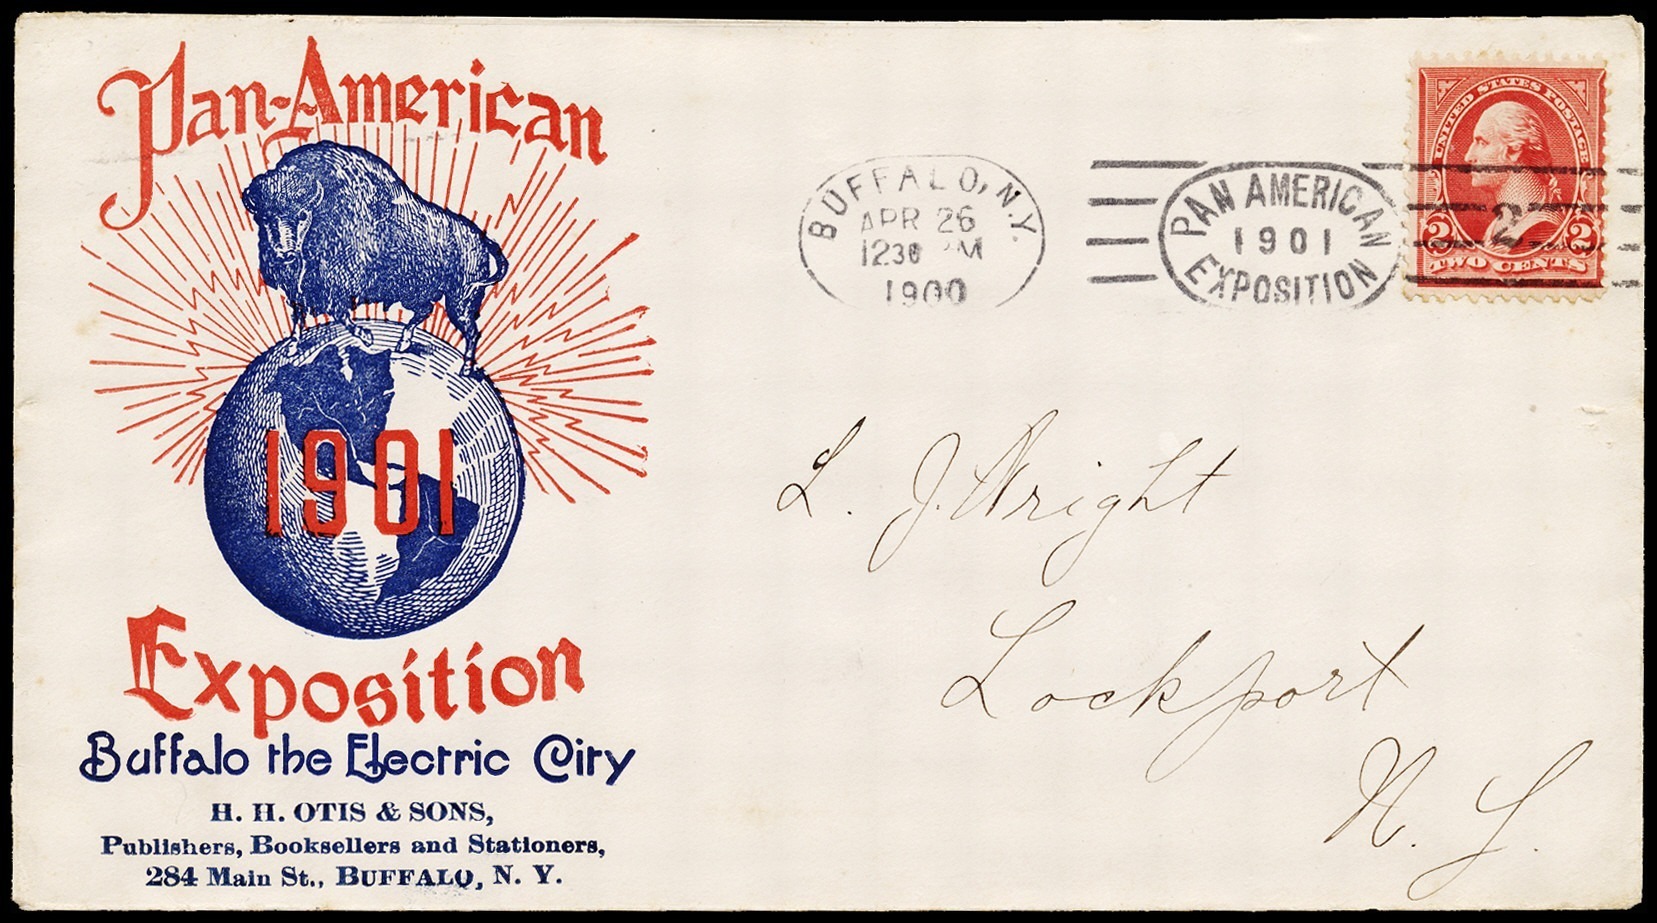 Pan-American
1901
Exposition
Buffalo the Electric City
H. H. OTIS & SONS,
Publishers, Booksellers and Stationers,
284 Main St., BUFFALO, N. Y.
BUFFALO, N.Y.
APR 26
1230 PM
1900
PAN AMERICAN
1901
EXPOSITION
2
UNITED STATES POSTAGE
2 2
TWO CENTS
L. J. Wright
Lockport
N. Y.